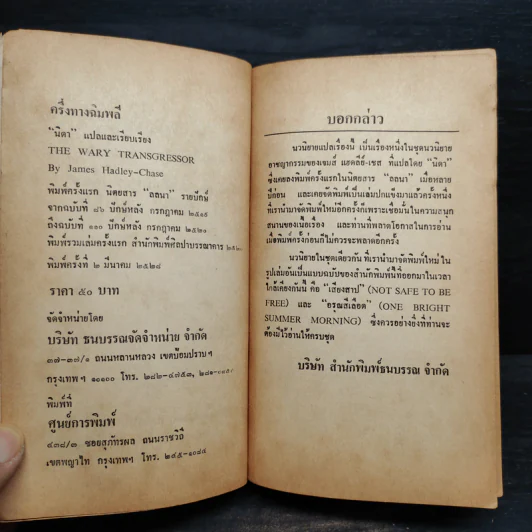 ครึ่งทางฉิมพลี
“นิดา” แปลและเรียบเรียง
THE WARY TRANSGRESSOR
By James Hadley-Chase
พิมพ์ครั้งแรก นิตยสาร “ลลนา” รายปักษ์
จากฉบับที่ ๘๖ ปักษ์หลัง กรกฎาคม ๒๕๑๙
ถึงฉบับที่ ๑๑๐ ปักษ์หลัง กรกฎาคม ๒๕๒๐
พิมพ์รวมเล่มครั้งแรก สำนักพิมพ์ศิลปาบรรณาคาร
พิมพ์ครั้งที่ ๒ มีนาคม ๒๕๒๘
ราคา ๕๐ บาท
จัดจำหน่ายโดย
บริษัท ธนบรรณจัดจำหน่าย จำกัด
๓๗-๓๗/๑ ถนนหลานหลวง เขตป้อมปราบฯ
กรุงเทพฯ ๑๐๑๐๐ โทร. ๒๘๒-๔๗๕๓,
พิมพ์ที่
ศูนย์การพิมพ์
๔๓๘/๓ ซอยสุภัทรผล ถนนราชวิถี
เขตพญาไท กรุงเทพฯ โทร. ๒๔๕-๑๐๘๔
บอกกล่าว
นวนิยายแปลเรื่องนี้ เป็นเรื่องหนึ่งในชุดนวนิยาย
อาชญากรรมของเจมส์ แฮดลีย์-เชส ที่แปลโดย “นิดา”
ซึ่งเคยลงพิมพ์ครั้งแรกในนิตยสาร “ลลนา” เมื่อหลาย
ปีก่อน และเคยจัดพิมพ์เป็นเล่มปกแข็งมาแล้วครั้งหนึ่ง
ที่เรานำมาจัดพิมพ์ใหม่อีกครั้งก็เพราะเชื่อมั่นในความสนุก
สนานของเนื้อเรื่อง และท่านที่พลาดโอกาสในการอ่าน
เมื่อพิมพ์ครั้งก่อนก็ไม่ควรจะพลาดอีกครั้ง
นวนิยายในชุดเดียวกัน ที่เรานำมาจัดพิมพ์ใหม่ใน
รูปเล่มอันเป็นแบบฉบับของสำนักพิมพ์ที่ออกมาในเวลา
ใกล้เคียงกันนี้ คือ “เสี่ยงสาป” (NOT SAFE TO BE
FREE) และ “อรุณสีเลือด” (ONE BRIGHT
SUMMER MORNING) ซึ่งควรอย่างยิ่งที่ท่านจะ
ต้องมีไว้อ่านให้ครบชุด
บริษัท สำนักพิมพ์ธนบรรณ จำกัด